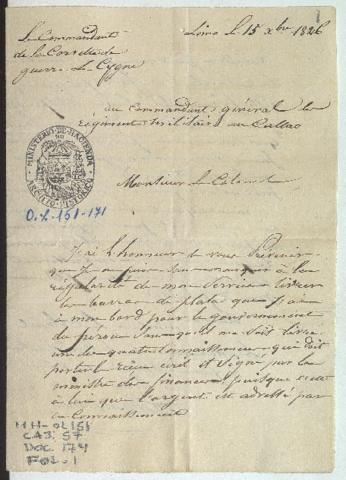 Le Commandant
de la Corvette de
guerre Le Cygne
Lima le 15 xbre 1826
au commandant général le
Régiment militaire au Callao
MINISTERIO DE HACIENDA
ARCHIVO HISTORICO
O.L. 151-171
Monsieur le Colonel
J'ai l'honneur de vous prévenir
que je ne puis sans manquer à la
régularité de mon service livrer
les barres de plata que j'ai
à mon bord pour le gouvernement
du pérou sans qu'on me soit livré
un des quatre connaissements qui doit
porter le reçu écrit et signé par le
ministre des finances puisque c'est
à lui que l'argent est adressé par
ce connaissement
MH-OL151
CAJ. 57
DOC. 174
FOL. 1